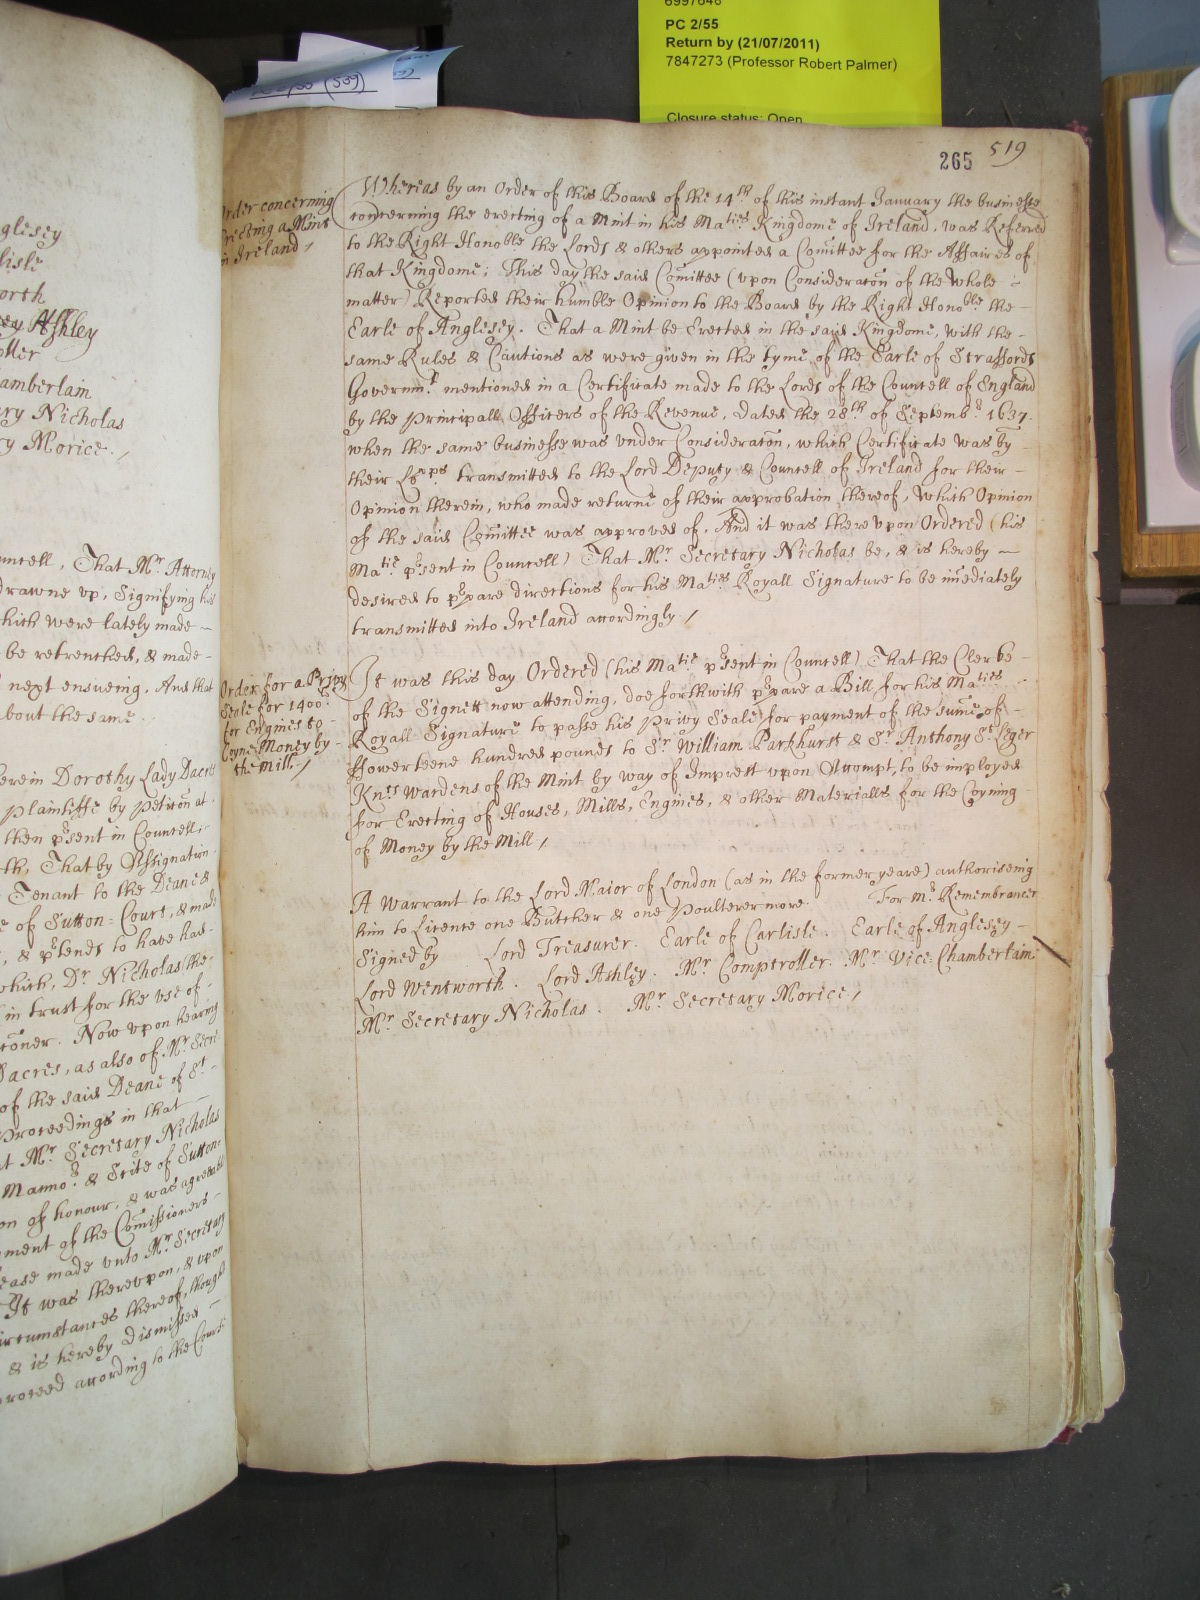 6997646
PC 2/55
Return by (21/07/2011)
7847273 (Professor Robert Palmer)
Closure status: Open
(539)
265 519
Order concerning
erecting a Mint
in Ireland /
Whereas by an Order of this Board of the 14th of this instant January the businesse
concerning the erecting of a Mint in his Maties Kingdome of Ireland, was Referred
to the Right Honoble the Lords & others appointed a Comittee for the Affaires of
that Kingdome; This day the said Comittee (vpon Consideraton of the Whole -
matter) Reported their humble Opinion to the Board by the Right Honoble the -
Earle of Anglesey. That a Mint be Erected in the said Kingdome, with the -
same Rules & Cautions as were given in the tyme of the Earle of Straffords
Governmt mentioned in a Certificate made to the Lords of the Councell of England
by the Principall Officers of the Revenue, Dated the 28th of Septembr 1637.
when the same businesse was vnder Consideraton, which Certificate was by -
their Lopps transmitted to the Lord Deputy & Councell of Ireland for their -
Opinion therein, who made returne of their approbation thereof, Which Opinion
of the said Comittee was approved of, And it was therevpon Ordered (his
Matie prsent in Councell) That Mr Secretary Nicholas be, & is hereby -
desired to prpare directions for his Maties Royall Signature to be imediately
transmitted into Ireland accordingly /
Order for a Privy
Seale for 1400li
for Engines to
Coyne Money by -
the Mill /
It was this day Ordered (his Matie prsent in Councell) That the Clerke -
of the Signett now attending, doe forthwith prpare a Bill for his Maties -
Royall Signature to passe his Privy Seale for payment of the sume of -
ffowerteene hundred pounds to Sr William Parkhurst & Sr Anthony St Leger
Knts Wardens of the Mint by way of Imprest vpon Accompt, to be imployed
for Erecting of Houses, Mills, Engines, & other Materialls for the Coyning -
of Money by the Mill /
A Warrant to the Lord Maior of London (as in the former yeare) authoriseing
him to Licence one Butcher & one Poulterer more. For mr Remembrancer
Signed by Lord Treasurer. Earle of Carlisle. Earle of Anglesey -
Lord Wentworth. Lord Ashley. Mr Comptroller. Mr Vice Chamberlain
Mr Secretary Nicholas. Mr Secretary Morice /
nglesey
lisle
orth
Ashley
oller
amberlam
ary Nicholas
y Morice. /
uncell, That Mr Attorney
drawne vp, Signifying his
hich were lately made -
be retrenched, & made -
next ensueing. And that
bout the same
herein Dorothy Lady Dacres
Plaintiffe by Petition at
then prsent in Councell;
th, That by Assignation
Tenant to the Deane &
e of Sutton = Court, & made
, & prtends to have had -
which, Dr Nicholas the -
in trust for the vse of -
coner. Now vpon hearing
Dacres, as also of Mr Secre
of the said Deane of St -
Proceedings in that -
at Mr Secretary Nicholas
Mannor & Scite of Sutton
on of honour, & was agreeable
ment of the Comissioners -
ease made vnto Mr Secretary
It was therevpon, & vpon
ircumstances thereof, thought
& is hereby Dismissed -
proceed according to the Course